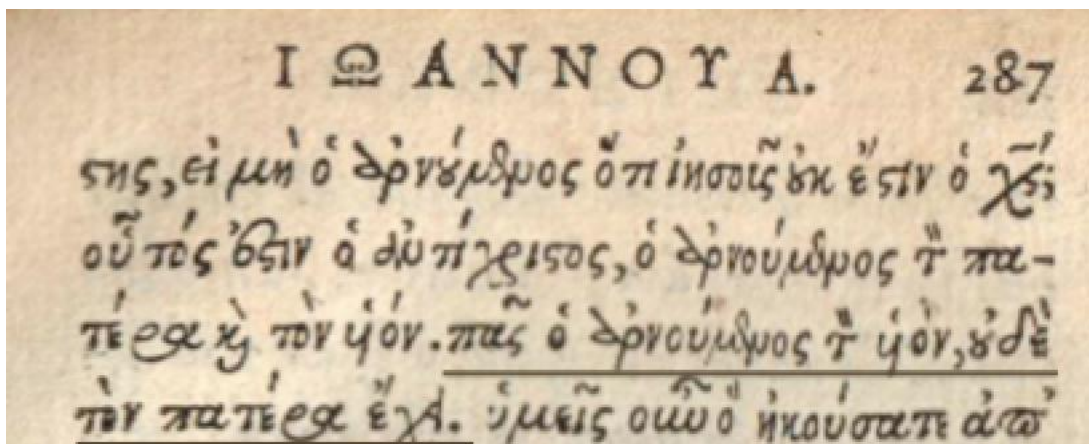 ΙΩΑΝΝΟΥ Α. 287
στης, εἰ μὴ ὁ ἀρνούμενος ὅτι ἰησοῦς οὐκ ἔστιν ὁ χς;
οὗτός ἐστιν ὁ ἀντίχριστος, ὁ ἀρνούμενος τὸν πα-
τέρα καὶ τὸν υἱόν. πᾶς ὁ ἀρνούμενος τὸν υἱὸν, οὐδὲ
τὸν πατέρα ἔχει. ὑμεῖς οὖν ὃ ἠκούσατε ἀπ